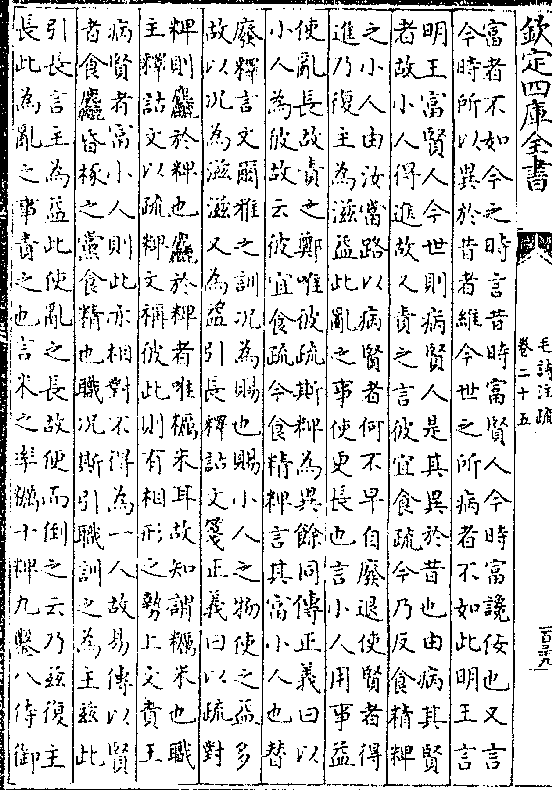 欽定四庫全書
毛詩注疏
卷二十五
富者不如今之時言昔時富賢人今時富讒佞也又言
今時所以異於昔者維今世之所病者不如此明王言
明王富賢人今世則病賢人是其異於昔也由病其賢
者故小人得進故又責之言彼宜食疏今乃反食精粺
之小人由汝當路以病賢者何不早自廢退使賢者得
進乃復主為滋益此亂之事使更長也言小人用事益
使亂長故責之鄭唯彼疏斯粺為異餘同傳正義曰以
小人為彼故云彼宜食疏今食精粺言其富小人也替
廢釋言文爾雅之訓况為賜也賜小人之物使之益多
故以况為滋滋又為益引長釋詁文箋正義曰以疏對
粺則麤於粺也麤於粺者唯糲米耳故知謂糲米也職
主釋詁文以疏粺文稱彼此則有相形之勢上文責王
病賢者富小人則此亦相對不得為一人故易傳以賢
者食麤昏椓之黨食精也職况斯引職訓之為主兹此
引長言主為益此使亂之長故便而倒之云乃兹復主
長此為亂之事責之也言米之率糲十粺九鑿八侍御